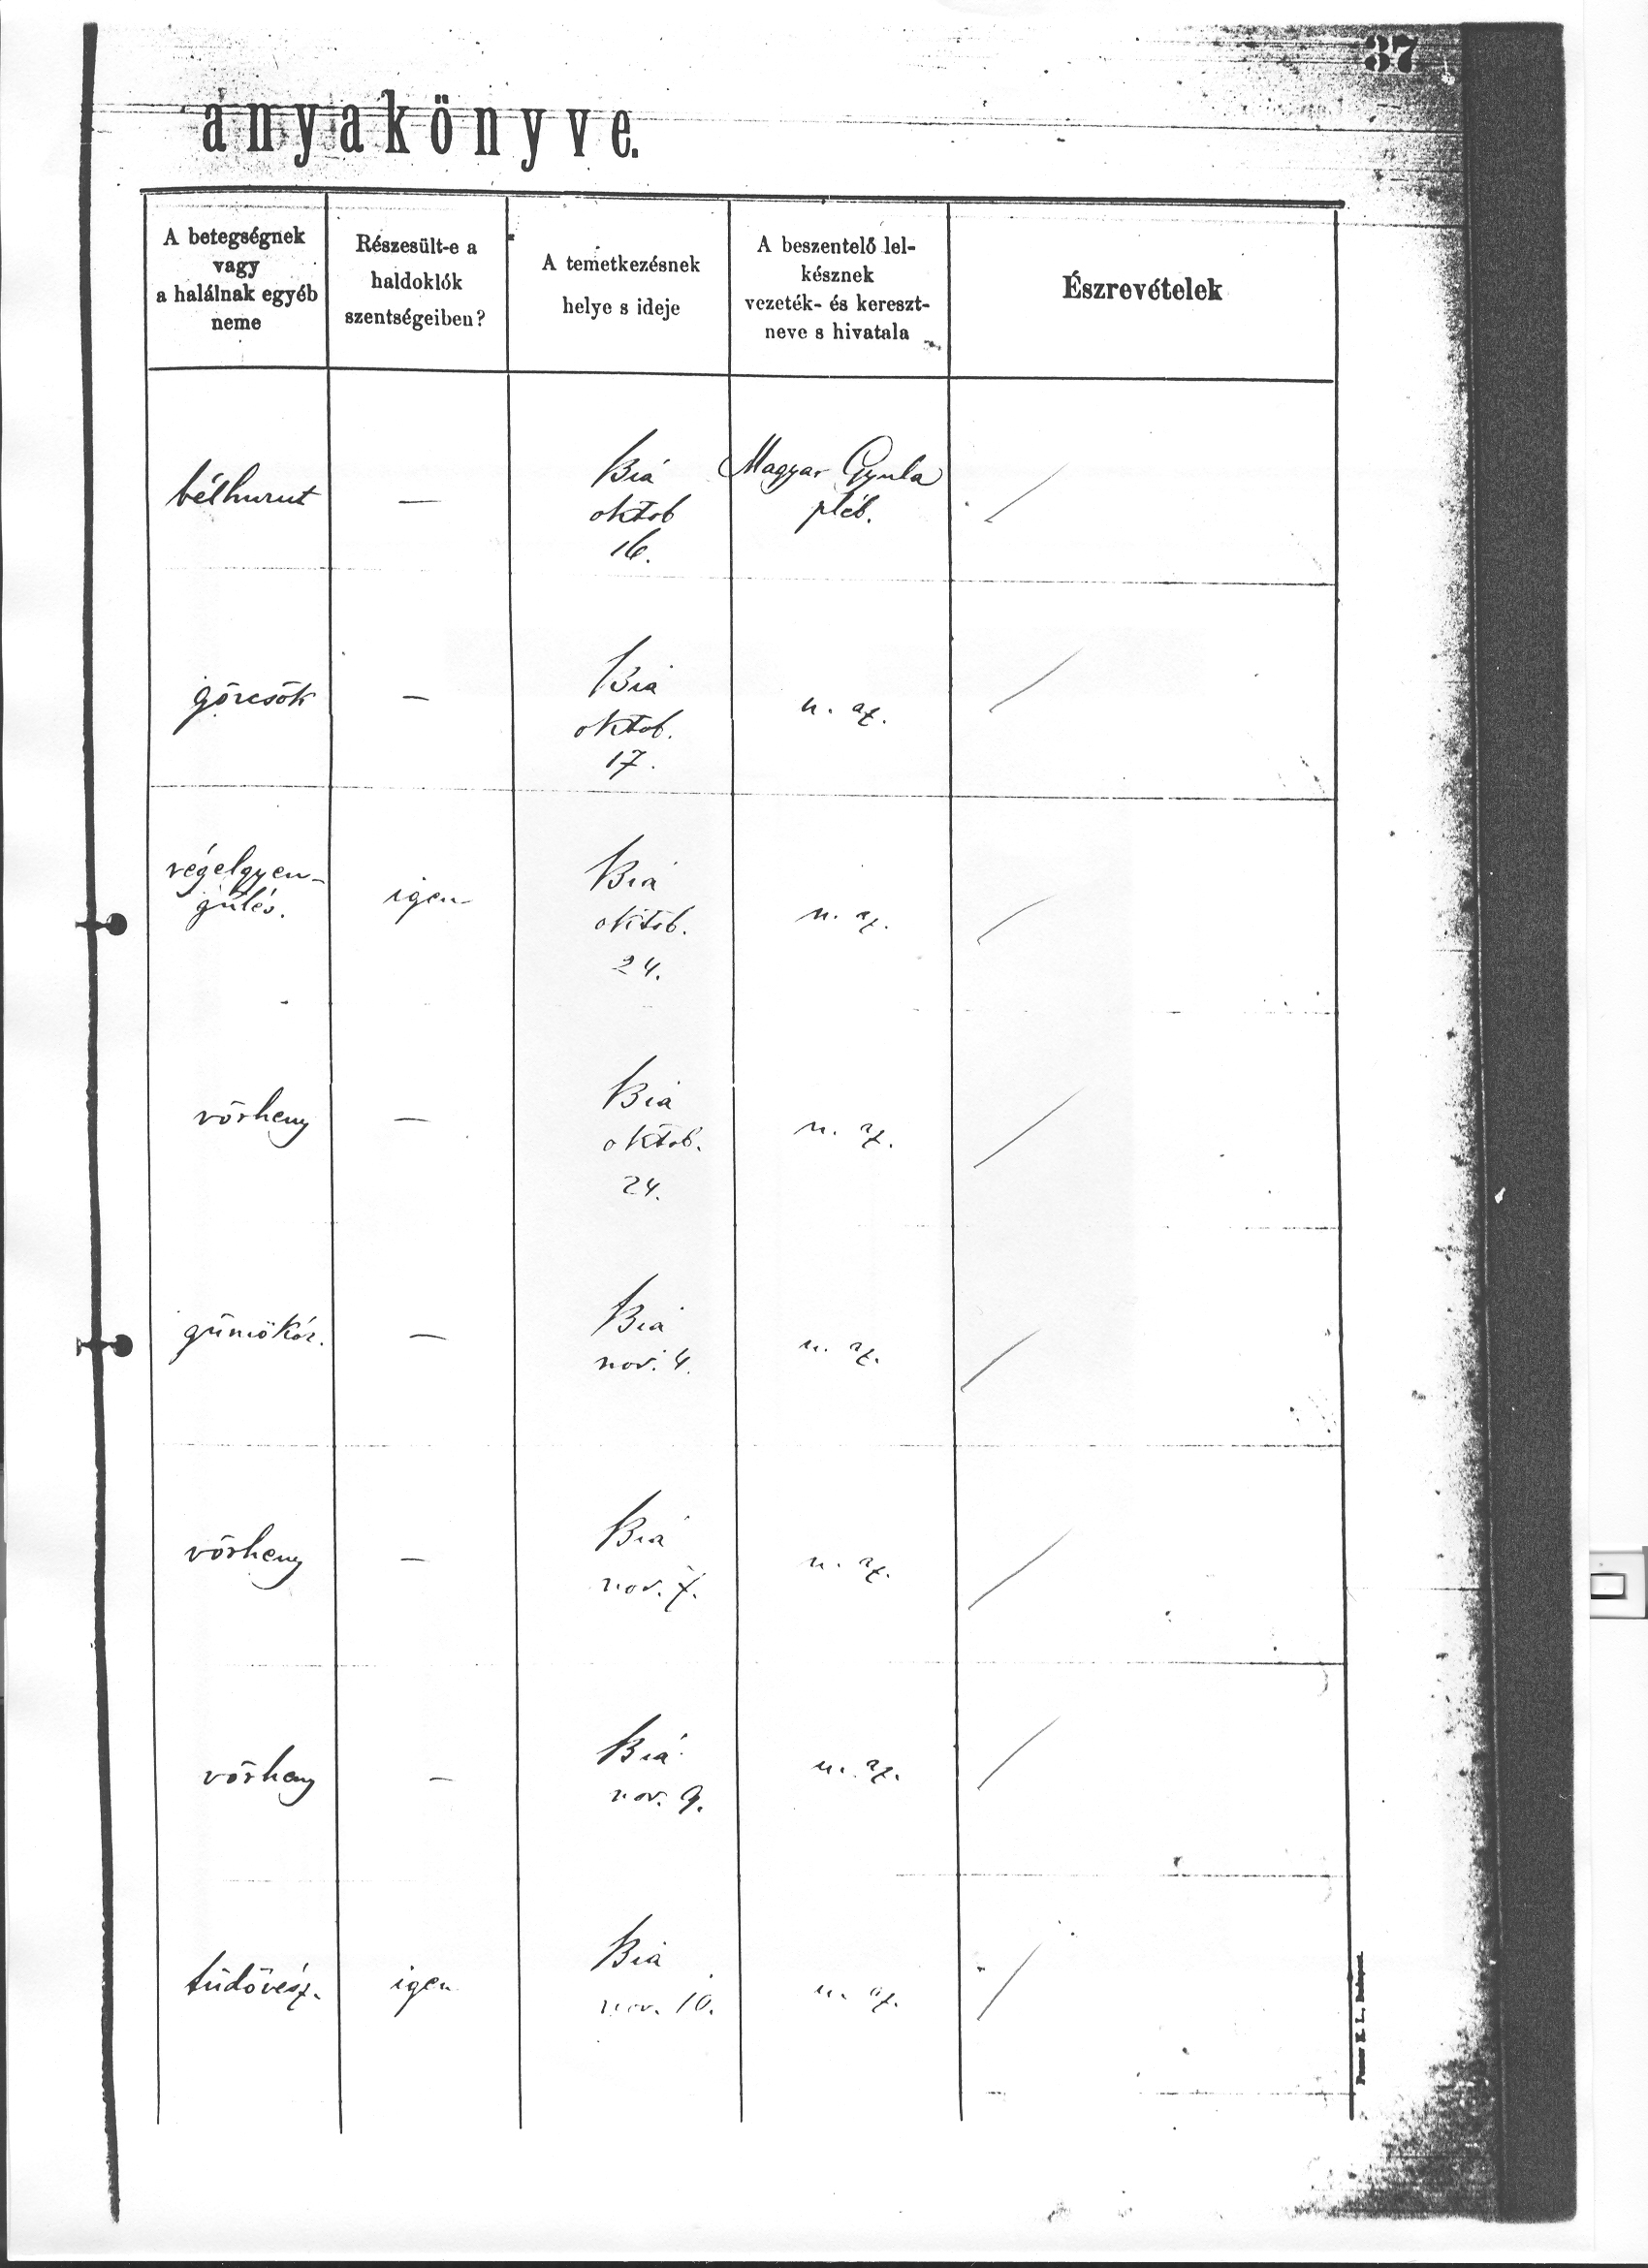 37
anyakönyve.
A betegségnek
vagy
a halálnak egyéb
neme
Részesült-e a
haldoklók
szentségeiben?
A temetkezésnek
helye s ideje
A beszentelő lel-
késznek
vezeték- és kereszt-
neve s hivatala
Észrevételek
bélhurut
—
Biá
oktob
16.
Magyar Gyula
pléb.
görcsök
—
Bia
oktob.
17.
u. az.
végelgyen-
gülés.
igen
Bia
oktob.
24.
u. az.
vörheny
—
Bia
oktob.
24.
u. az.
gümőkór.
—
Bia
nov. 4.
u. az.
vörheny
—
Biá
nov. 7.
u. az.
vörheny
—
Biá
nov. 9.
u. az.
tüdővész.
igen
Bia
nov. 10.
u. az.
Posner K. L., Budapest